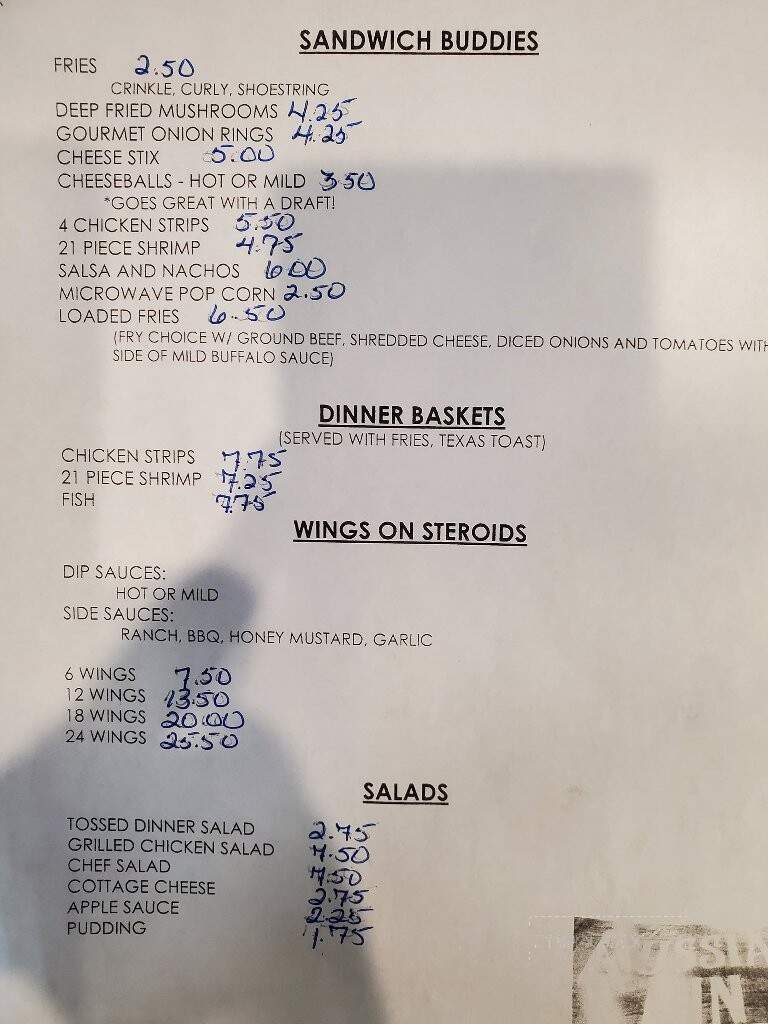 SANDWICH BUDDIES
FRIES 2.50
CRINKLE, CURLY, SHOESTRING
DEEP FRIED MUSHROOMS 4.25
GOURMET ONION RINGS 4.25
CHEESE STIX 5.00
CHEESEBALLS - HOT OR MILD 3.50
*GOES GREAT WITH A DRAFT!
4 CHICKEN STRIPS 5.50
21 PIECE SHRIMP 4.75
SALSA AND NACHOS 6.00
MICROWAVE POP CORN 2.50
LOADED FRIES 6.50
(FRY CHOICE W/ GROUND BEEF, SHREDDED CHEESE, DICED ONIONS AND TOMATOES WITH
SIDE OF MILD BUFFALO SAUCE)
DINNER BASKETS
(SERVED WITH FRIES, TEXAS TOAST)
CHICKEN STRIPS 7.75
21 PIECE SHRIMP 7.25
FISH 7.75
WINGS ON STEROIDS
DIP SAUCES:
HOT OR MILD
SIDE SAUCES:
RANCH, BBQ, HONEY MUSTARD, GARLIC
6 WINGS 7.50
12 WINGS 13.50
18 WINGS 20.00
24 WINGS 25.50
SALADS
TOSSED DINNER SALAD 2.75
GRILLED CHICKEN SALAD 7.50
CHEF SALAD 7.50
COTTAGE CHEESE 2.75
APPLE SAUCE 2.25
PUDDING 1.75
IN